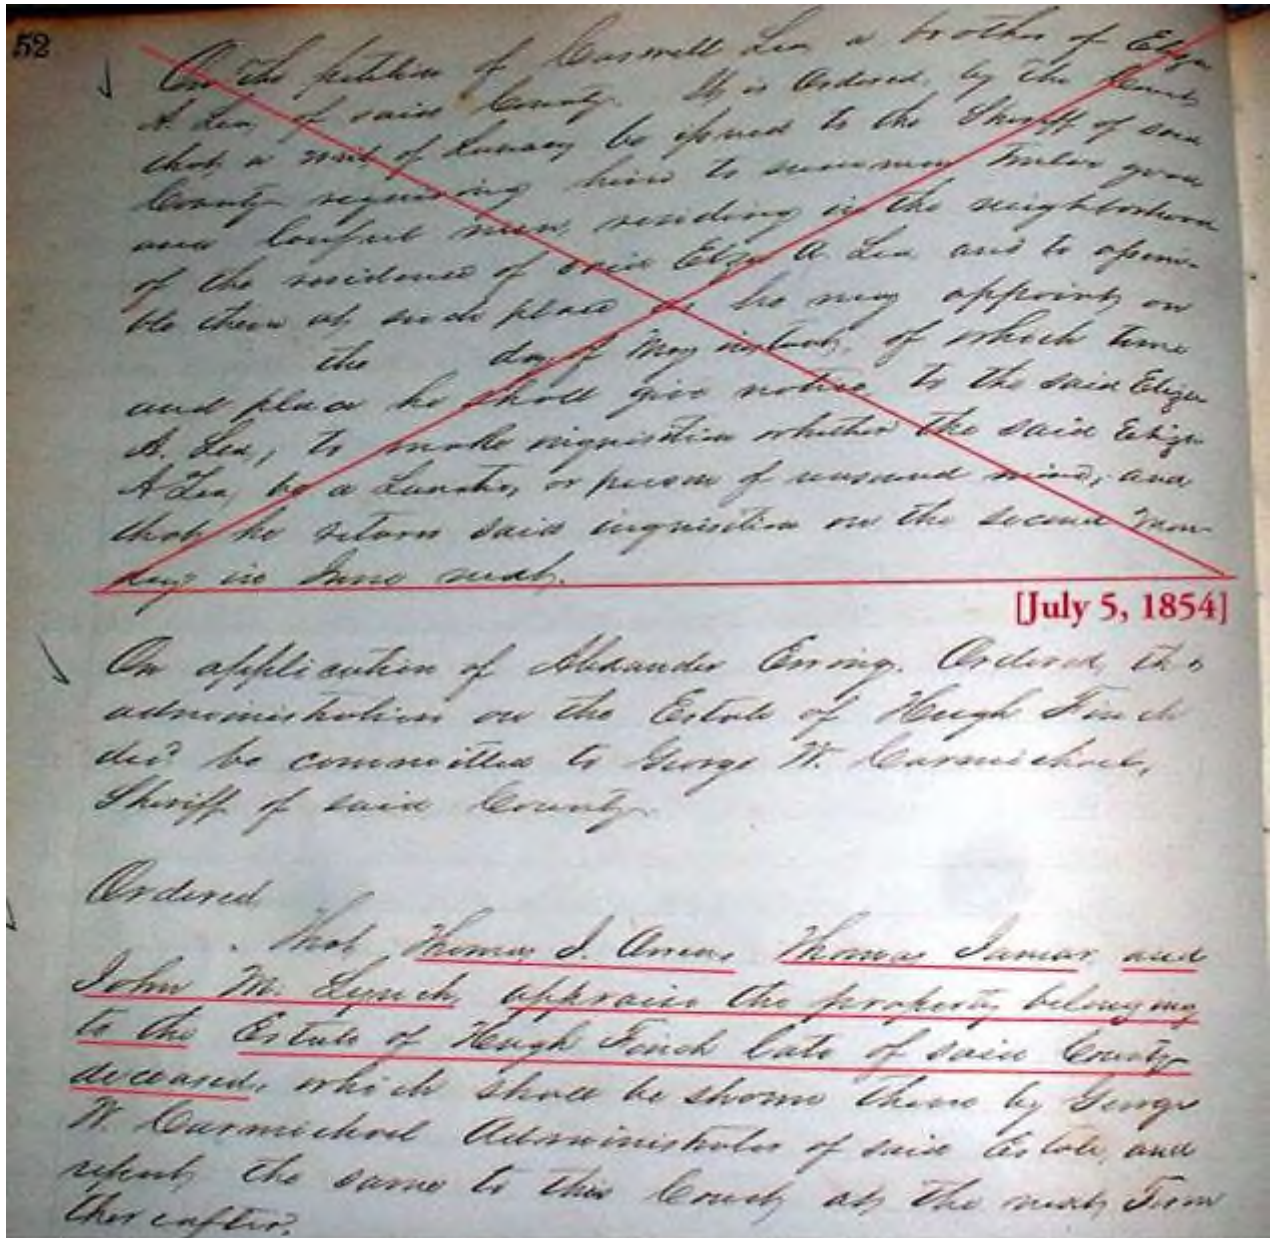 52
On the petition of Carswell Lea a brother of Eliza
A. Lea, of said County. It is Ordered, by the Court
that a writ of Lunacy be issued to the Sheriff of said
County requiring him to summon Twelve good
and lawful men, residing in the neighborhood
of the residence of said Eliza A. Lea and to assem-
ble them at such place as he may appoint, on
the day of May instant, of which time
and place he shall give notice to the said Eliza
A. Lea, to make inquisition whether the said Eliza
A Lea, be a Lunatic, or person of unsound mind, and
that he return said inquisition on the second Mon-
day in June next.
[July 5, 1854]
On application of Alexander Erving. Ordered, the
administration on the Estate of Hugh Finch
decd be committed to George W. Carmichael,
Sheriff of said County.
Ordered
That Thomas J. Thomas Lamar and
John M. Lynch, appraise the property belonging
to the Estate of Hugh Finch late of said County
deceased, which shall be shown them by George
W. Carmichael Administrator of said Estate, and
report, the same to this Court at the next Term
thereafter.